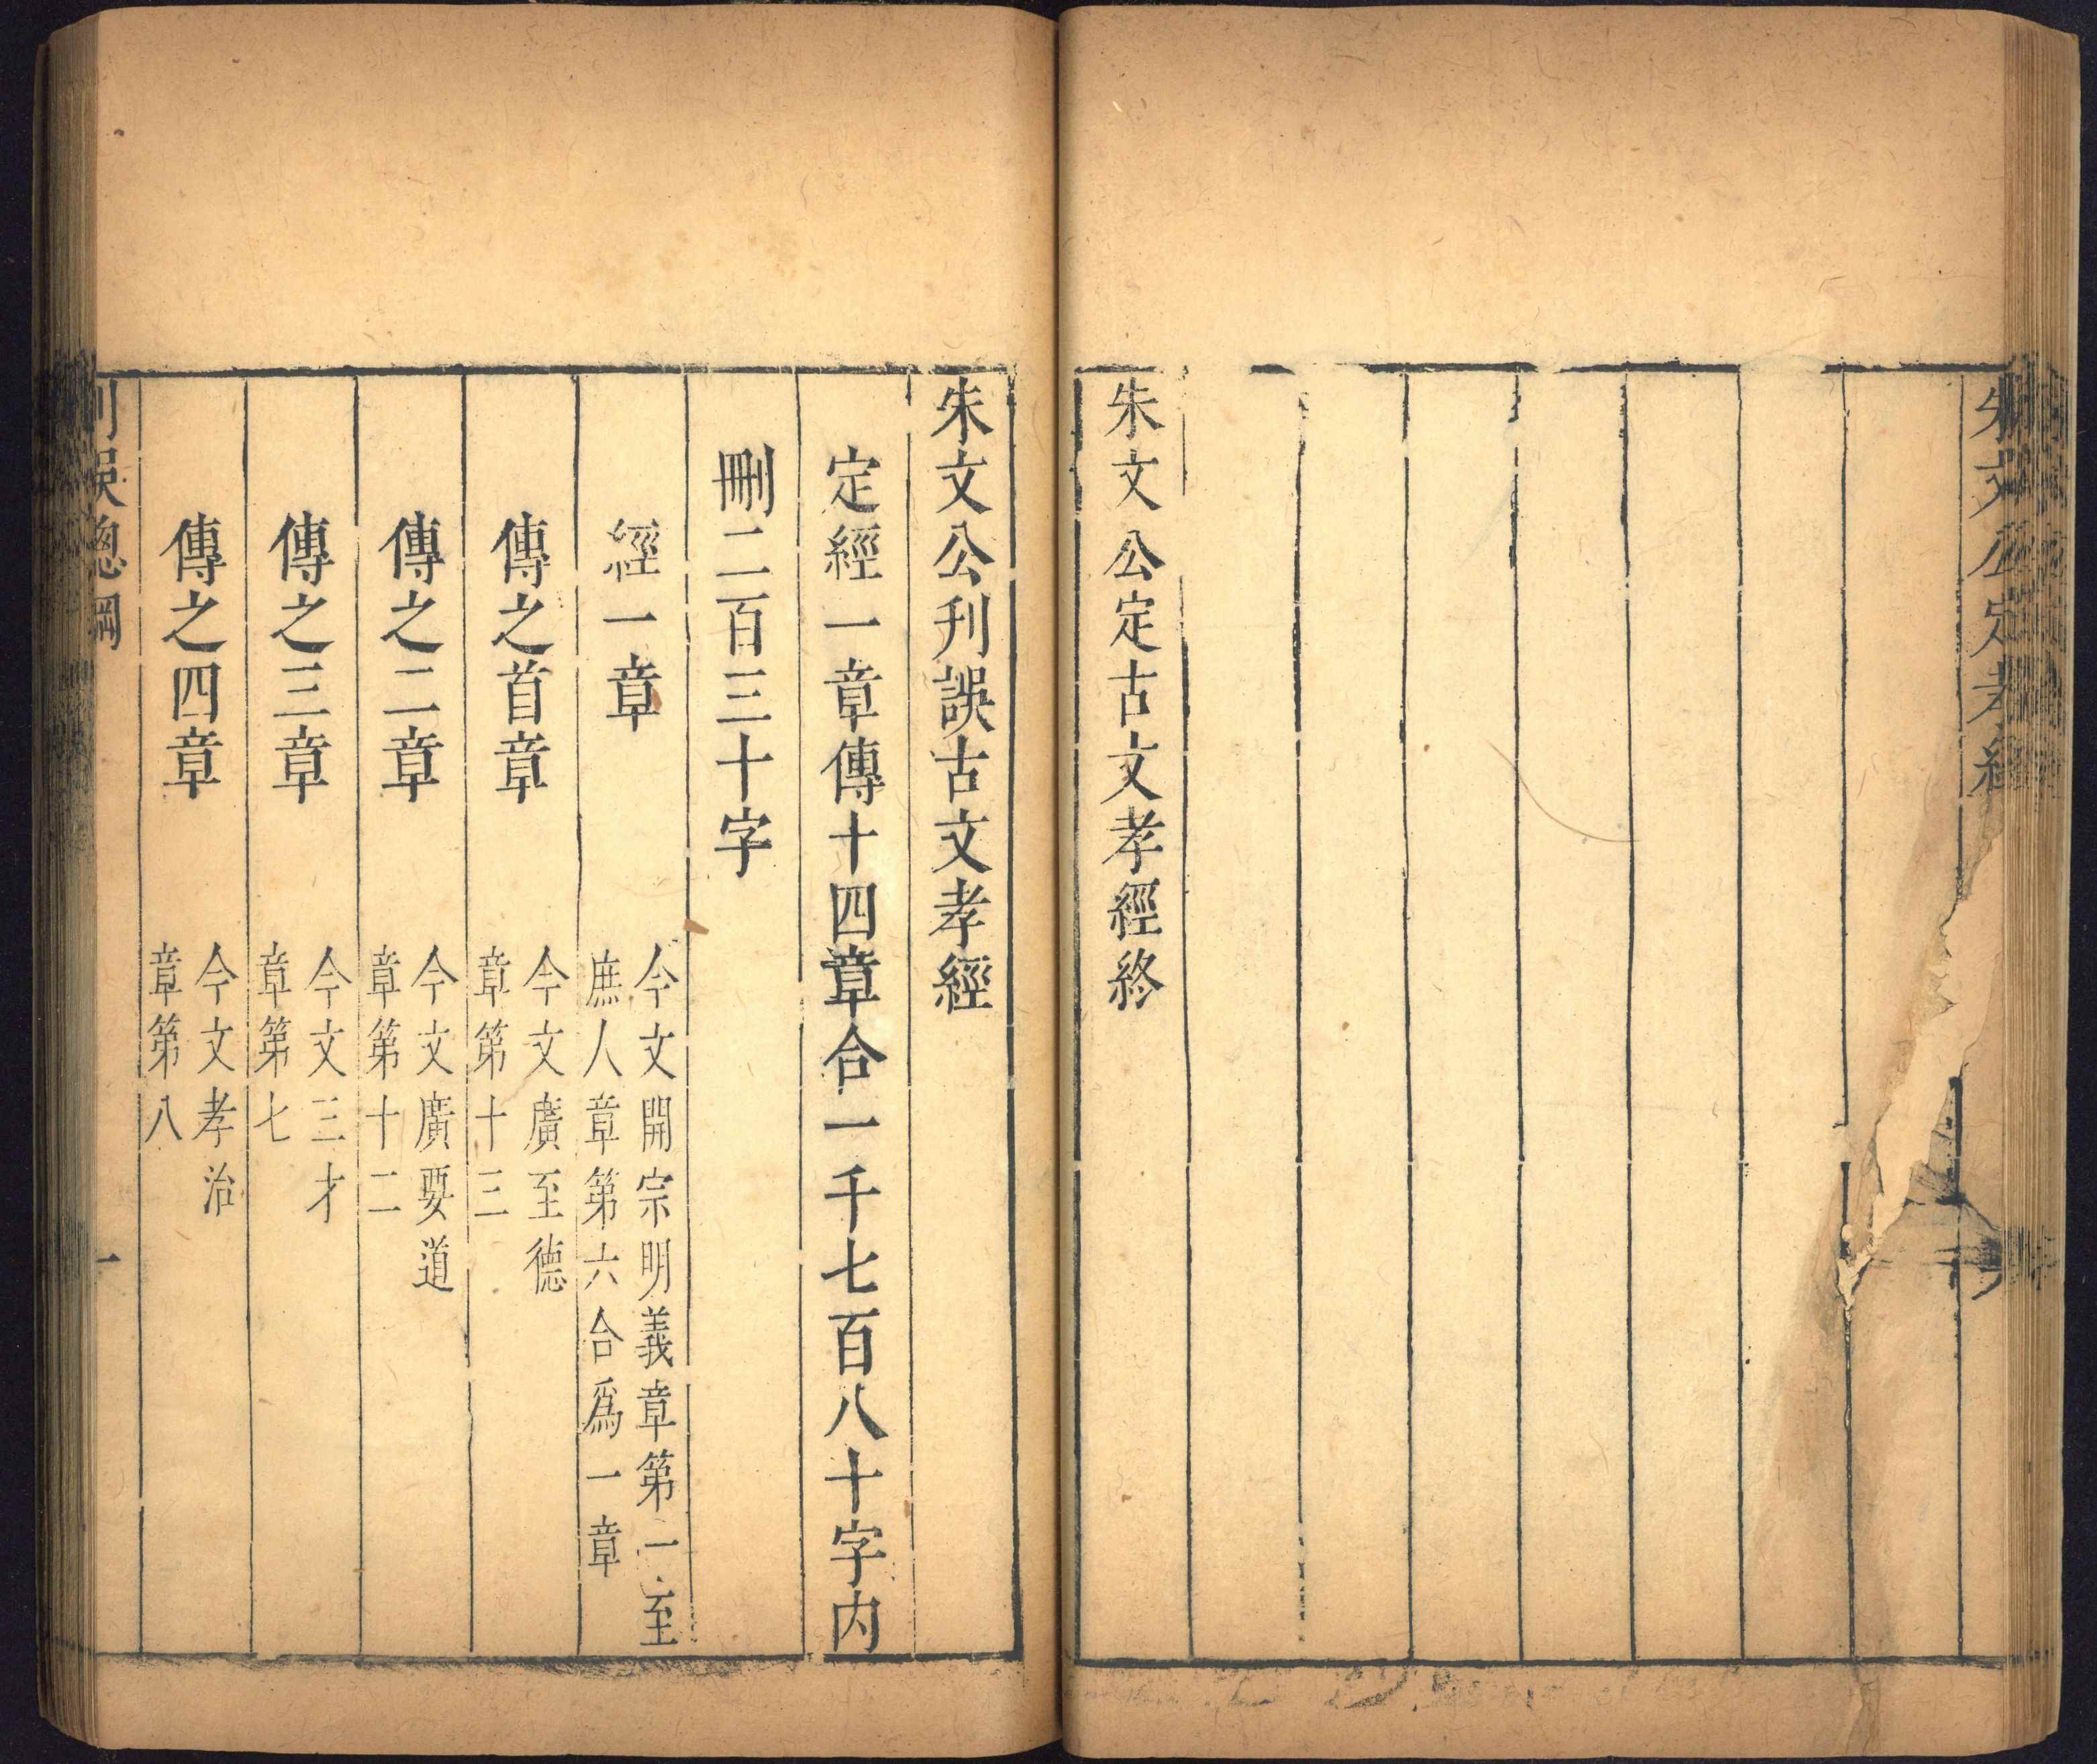 朱文公定孝經
朱文公定古文孝經終
朱文公刊誤古文孝經
定經一章傳十四章合一千七百八十字內
刪二百三十字
經一章
今文開宗明義章第一至
庶人章第六合爲一章
傳之首章
今文廣至德
章第十三
傳之二章
今文廣要道
章第十二
傳之三章
今文三才
章第七
傳之四章
今文孝治
章第八
刊誤總綱
一